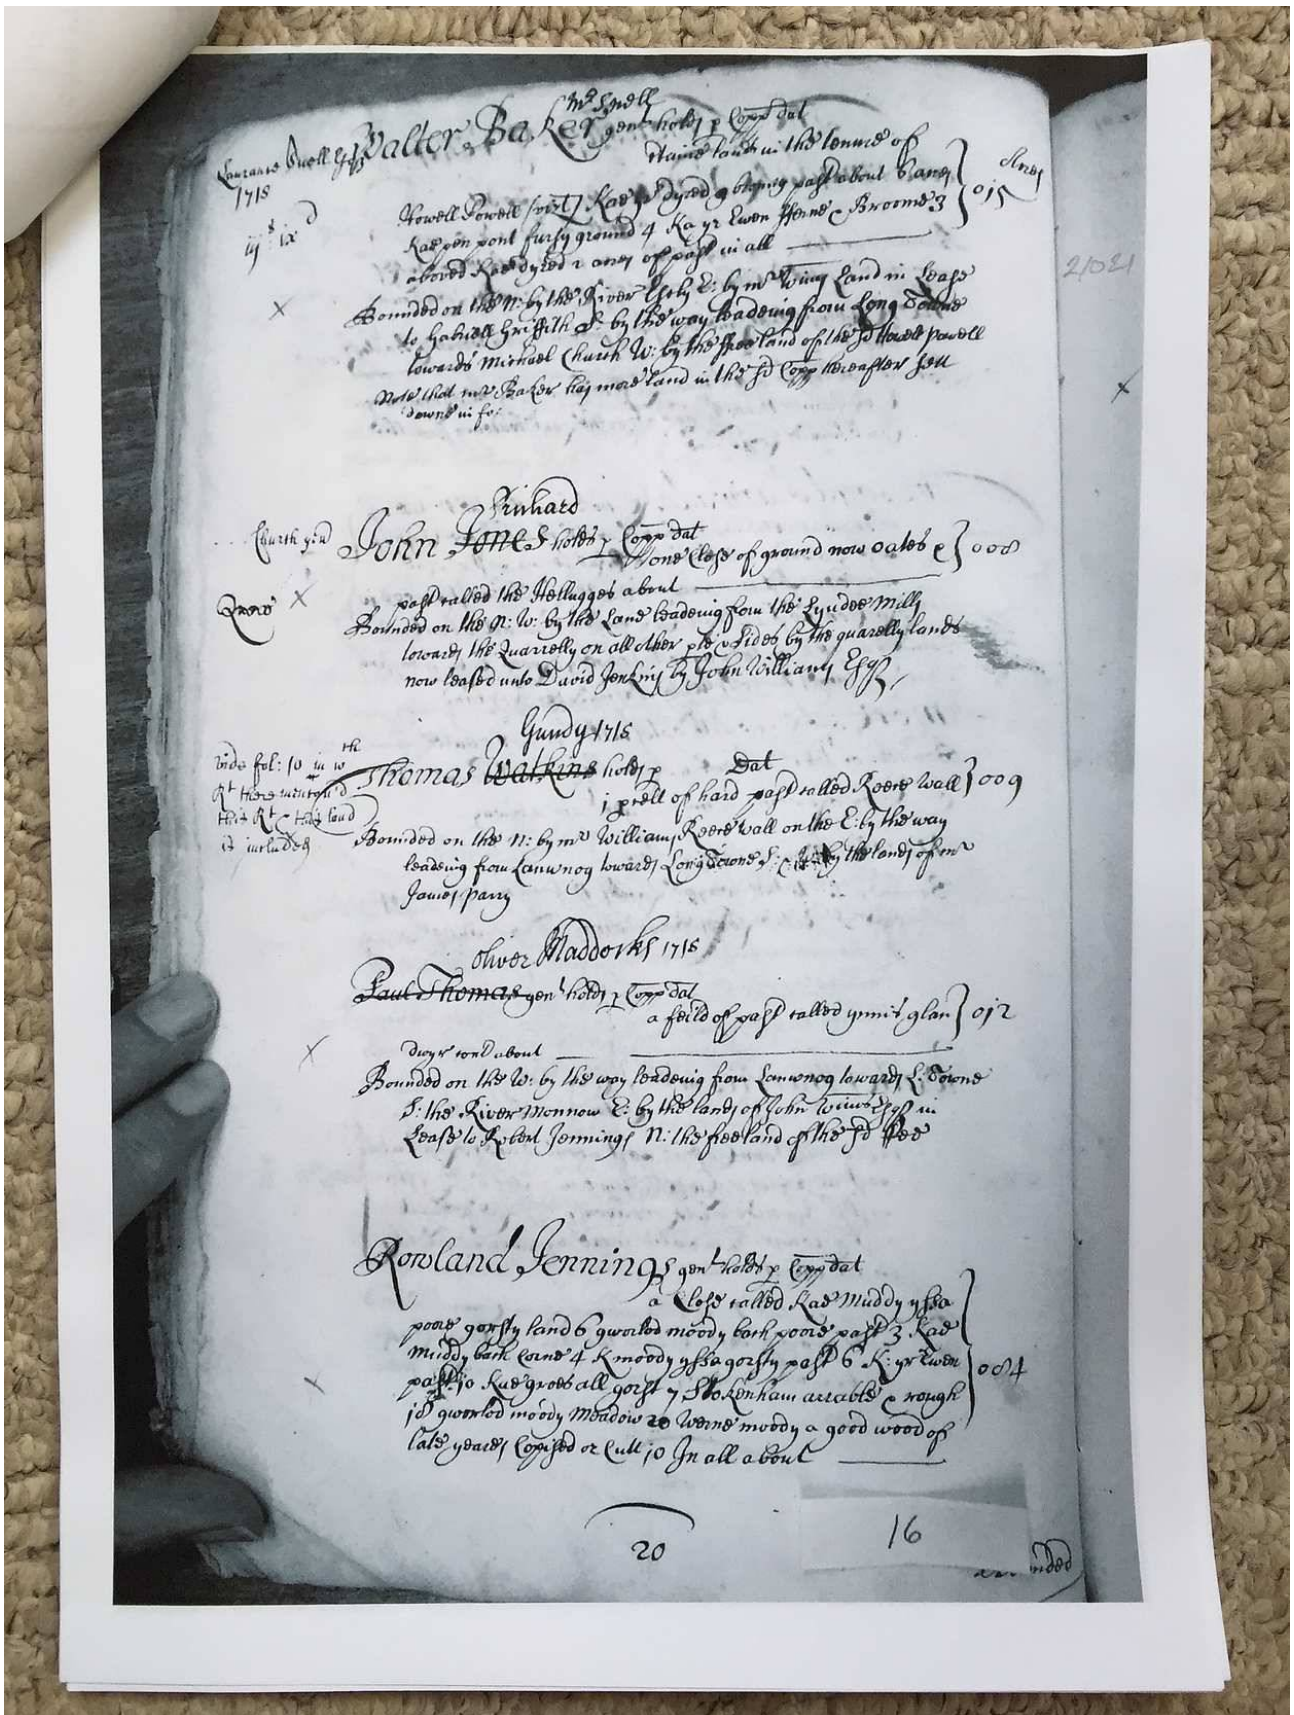 Mr Snell
Walter Baker gent holds p Copp dat
Laurance Snell Esqr
1718
iijs ixd
Acres
Howell Powell
certaine lands in the tenure of
Howell Powell (vizt) Kae yr dyred & blaing past about 6 acres
Kae pen pont fursy ground 4 Ka yr Ewen fferne & Broome 3 } 015
aboved Kae dyred 2 acres of past in all
Bounded on the N: by the River Eskly E: by mr Wins Land in Lease
to Gabriell Griffith S: by the way leadeing from Long Towne
towards Michael Church W: by the free land of the sd Howell Powell
Note that mr Baker has more land in the sd Copp hereafter sett
downe in fo:
21021
Prichard
Church yd
John Jones holds p Copp dat
one Close of ground now oates & } 008
past called the Hellugges about
Bounded on the N: W: by the Lane leadeing from the Lyndee Mills
towards the Quarrelly on all other pte & sides by the quarelly lands
now leased unto David Jenkins by John Williams Esqr
Gundy 1718
vide fol: 10 in wth
Rt there mention'd
this Rt & this land
is included
Thomas Watkins holds p Dat
1 pcell of hard past called Reere wall } 009
Bounded on the N: by mr Williams Reere wall on the E: by the way
leadeing from Lanwnog towards Long Towne S: & W: by the lands of mr
James Parry
Oliver Maddocks 1718
Paul Thomas gent holds p Copp dat
a feild of past called ynnis glan } 012
dwyr cont about
Bounded on the W: by the way leadeing from Lanwnog towards L: Towne
S: the River Monnow E: by the lands of John Wins Esqr in
Lease to Robert Jennings N: the free land of the sd ffee
Rowland Jennings gent holds p Copp dat
a Close called Kae Muddy yssa
poore gorsty land 6 gworlod moody bach poore past 3 Kae
muddy bach Corne 4 K moody yssa gorsty past 6 K: yr Ewen } 084
past 10 Kae groes all gorst 7 Stokenham arrable & rough
18 gworlod moody Meadow 20 Werne moody a good wood of
late yeares Copised or Cutt 10 In all about
20
16